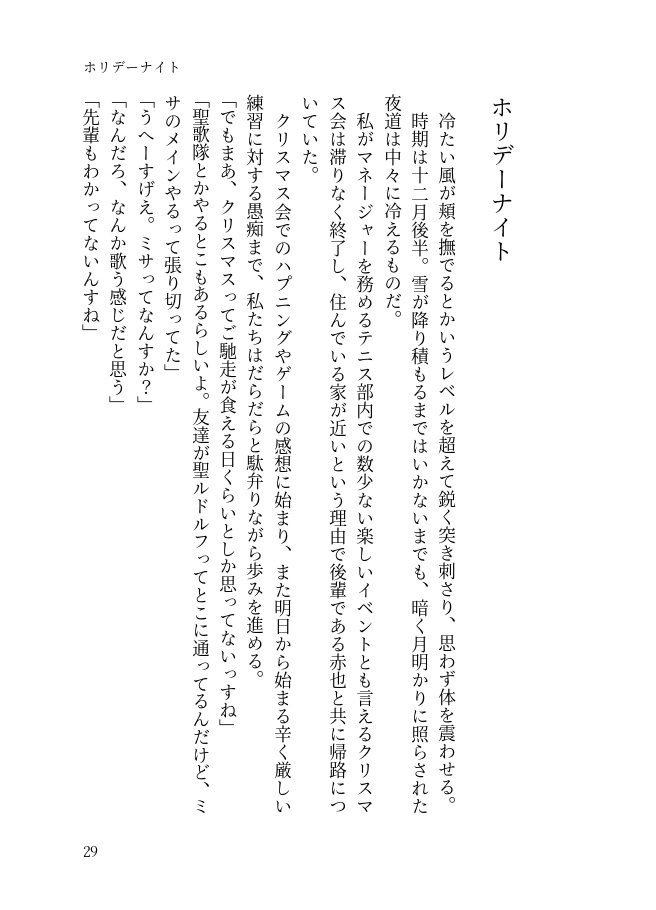 ホリデーナイト
ホリデーナイト
冷たい風が頬を撫でるとかいうレベルを超えて鋭く突き刺さり、思わず体を震わせる。
時期は十二月後半。雪が降り積もるまではいかないまでも、暗く月明かりに照らされた
夜道は中々に冷えるものだ。
私がマネージャーを務めるテニス部内での数少ない楽しいイベントとも言えるクリスマ
ス会は滞りなく終了し、住んでいる家が近いという理由で後輩である赤也と共に帰路につ
いていた。
クリスマス会でのハプニングやゲームの感想に始まり、また明日から始まる辛く厳しい
練習に対する愚痴まで、私たちはだらだらと駄弁りながら歩みを進める。
「でもまあ、クリスマスってご馳走が食える日くらいとしか思ってないっすね」
「聖歌隊とかやるとこもあるらしいよ。友達が聖ルドルフってとこに通ってるんだけど、ミ
サのメインやるって張り切ってた」
「うへーすげえ。ミサってなんすか？」
「なんだろ、なんか歌う感じだと思う」
「先輩もわかってないんすね」
29